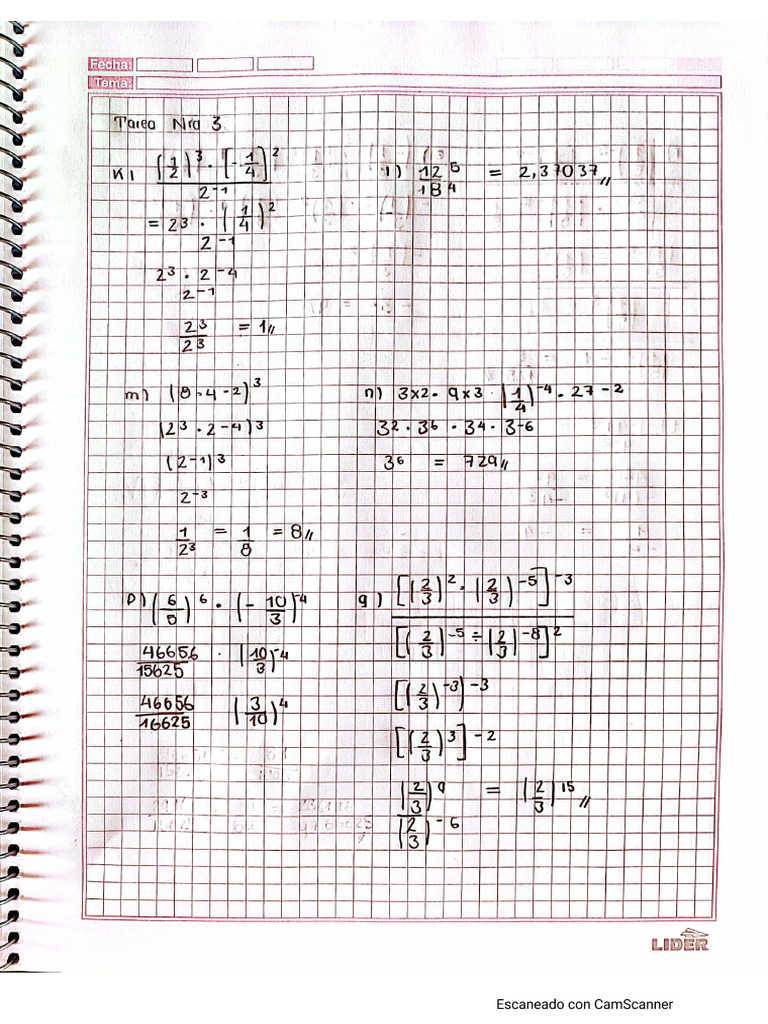 Fecha:
Tema:
Tarea Nro 3
K) (1/2)^3 · [-1/4]^2 / 2^-1
= 2^3 · (1/4)^2 / 2^-1
2^3 · 2^-4 / 2^-1
2^3 / 2^3 = 1//
l) 12^5 / 18^4 = 2,37037//
m) (8 · 4^-2)^3
(2^3 · 2^-4)^3
(2^-1)^3
2^-3
1/2^3 = 1/8 = 8//
n) 3x2 · 9x3 · (1/4)^-4 · 27^-2
3^2 · 3^6 · 3^4 · 3^-6
3^6 = 729//
p) (6/5)^6 · (-10/3)^-4
46656/15625 · (10/3)^-4
46656/16625 (3/10)^4
q) [(2/3)^2 · (2/3)^-5]^-3 / [(2/3)^-5 ÷ (2/3)^-8]^2
[(2/3)^-3)^-3
[(2/3)^3]^-2
(2/3)^9 / (2/3)^-6 = (2/3)^15//
LIDER
Escaneado con CamScanner